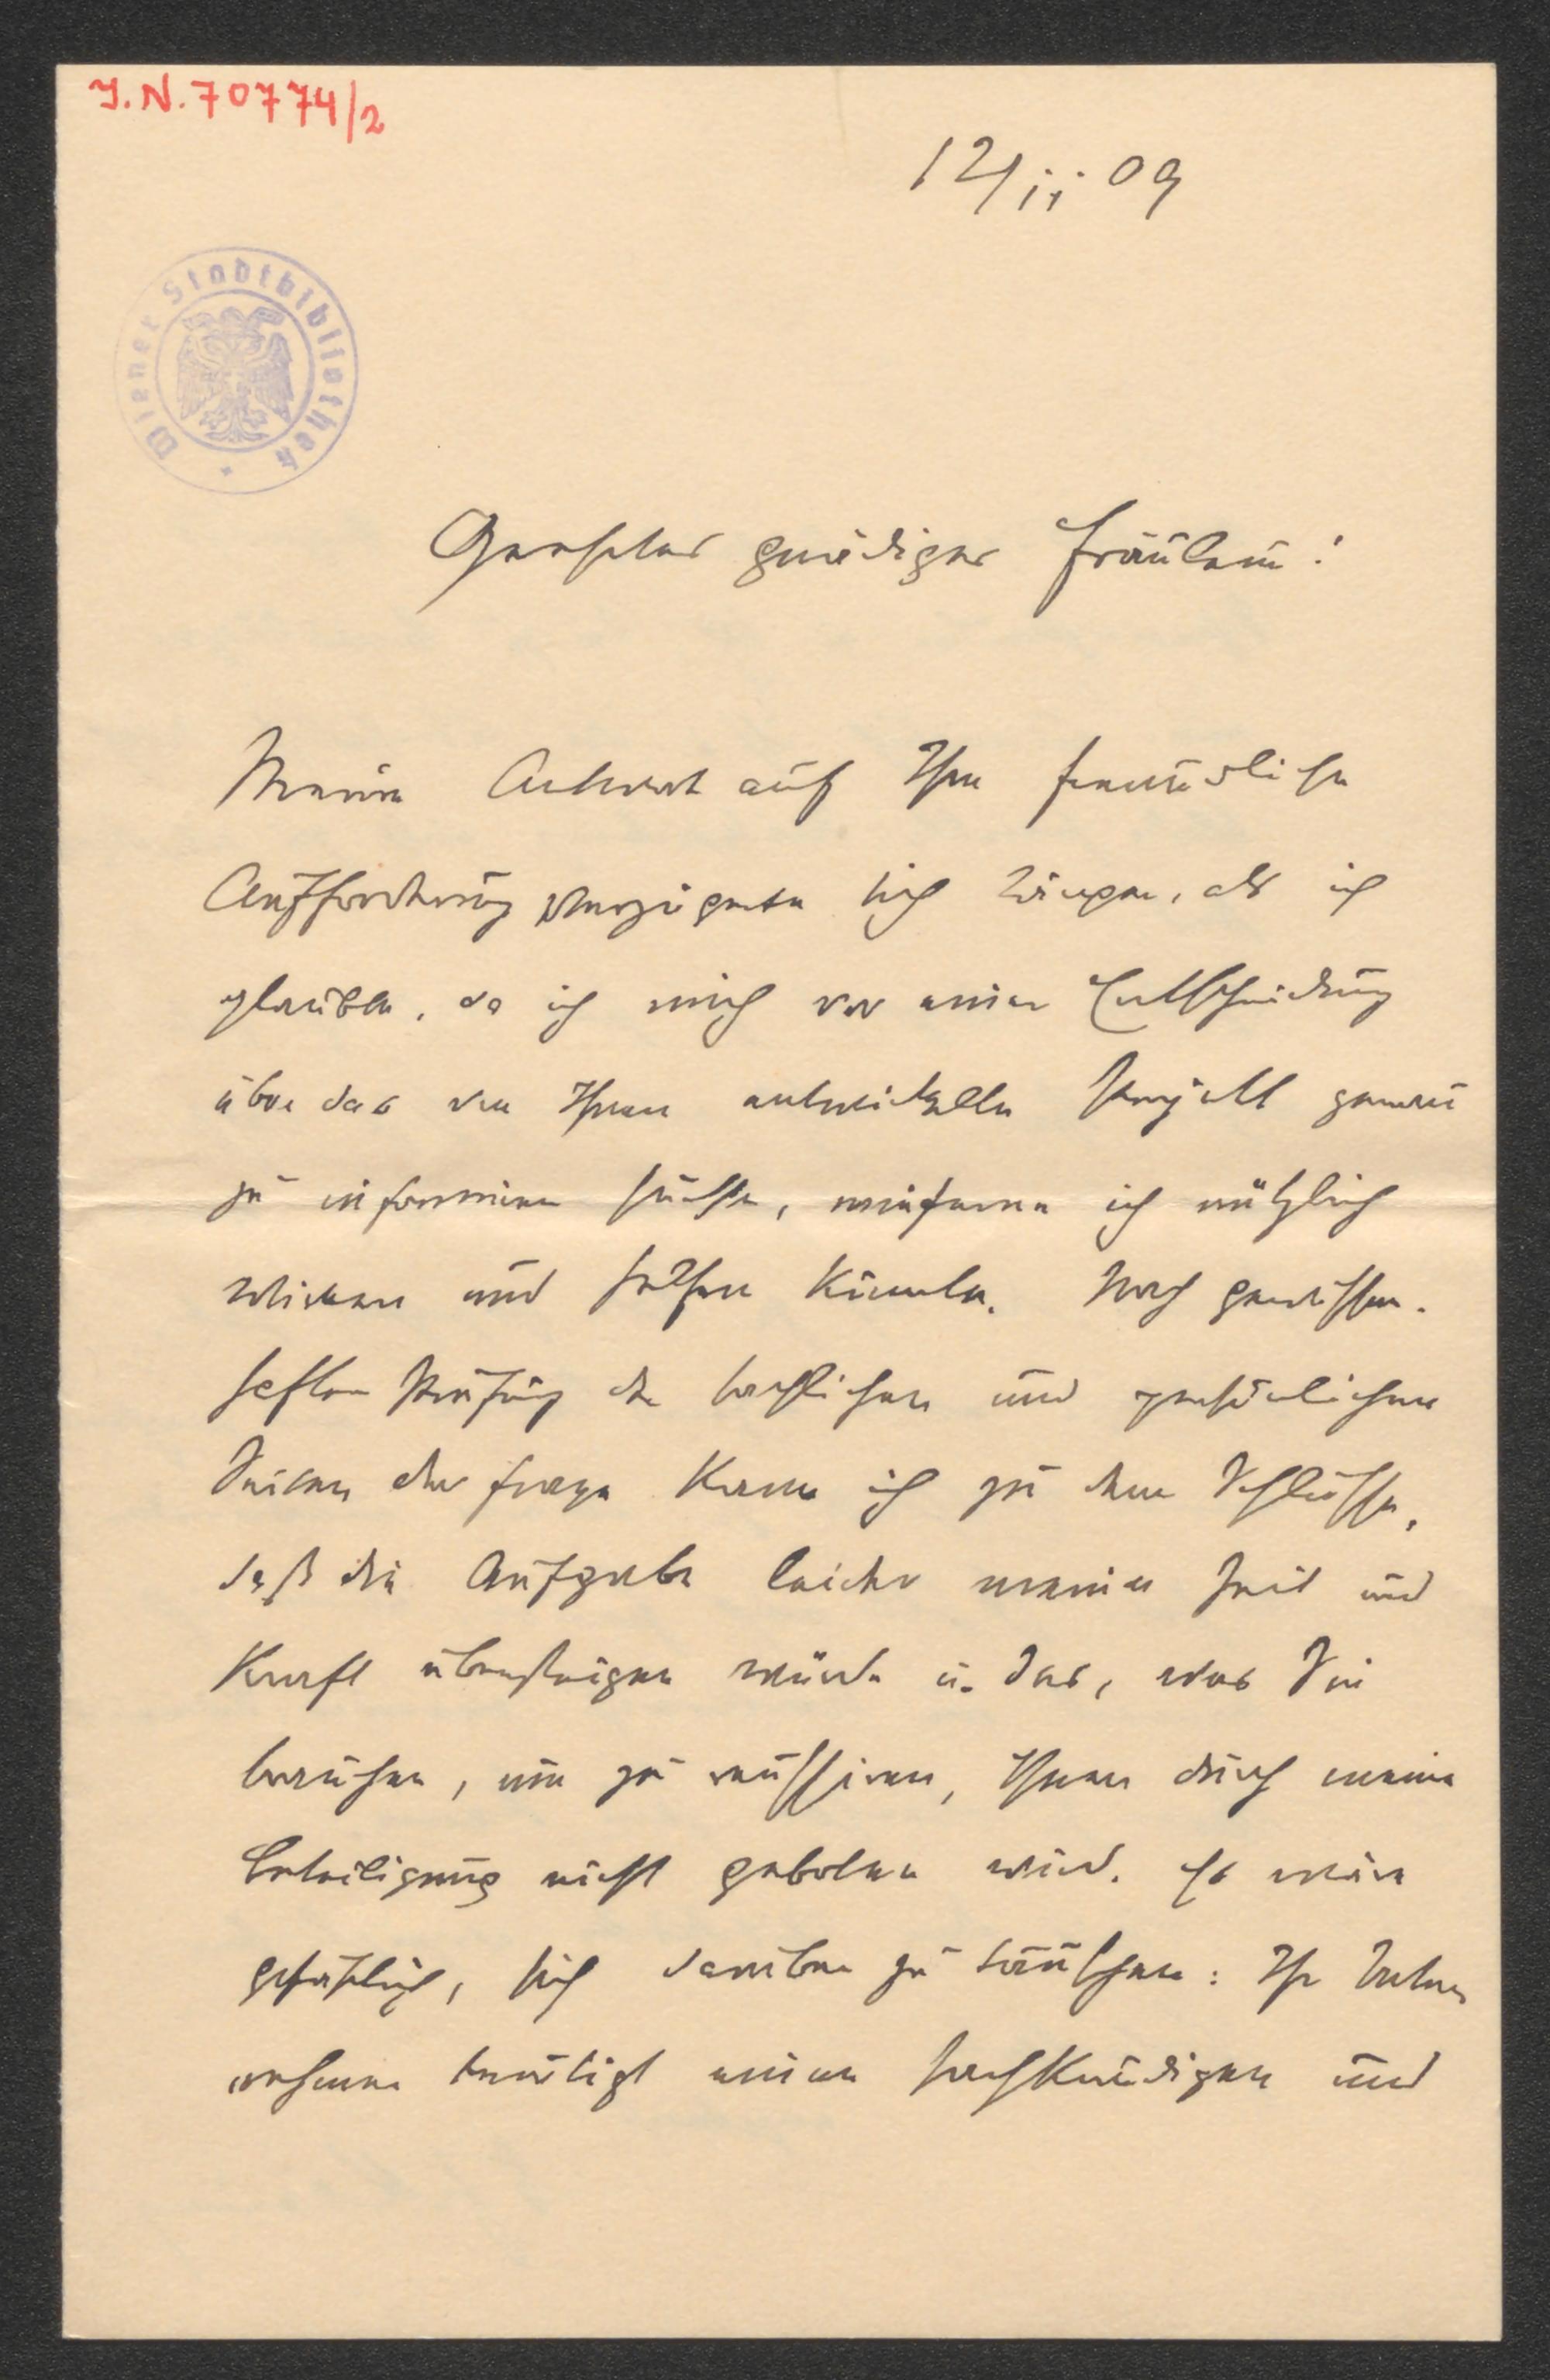 J.N. 70774/2
12/ii 09
Wiener Stadtbibliothek
Geehrtes gnädiges Fräulein!
Meine Antwort auf Ihre freundliche
Aufforderung verzögerte sich länger, als ich
glaubte, da ich mich vor einer Entscheidung
über das von Ihnen entwickelte Projekt genau
zu informiren suchte, wieferne ich nützlich
wirken und helfen könnte. Nach gewissen-
hafter Prüfung der sachlichen und persönlichen
Seiten der Frage kam ich zu dem Schlusse,
daß die Aufgabe leider meine Zeit und
Kraft übersteigen würde u. das, was Sie
brauchen, um zu reüssiren, Ihnen durch meine
Beteiligung nicht geboten wird. Es wäre
gefährlich, sich darüber zu täuschen: Ihr Unter-
nehmen benötigt einen sachkundigen und